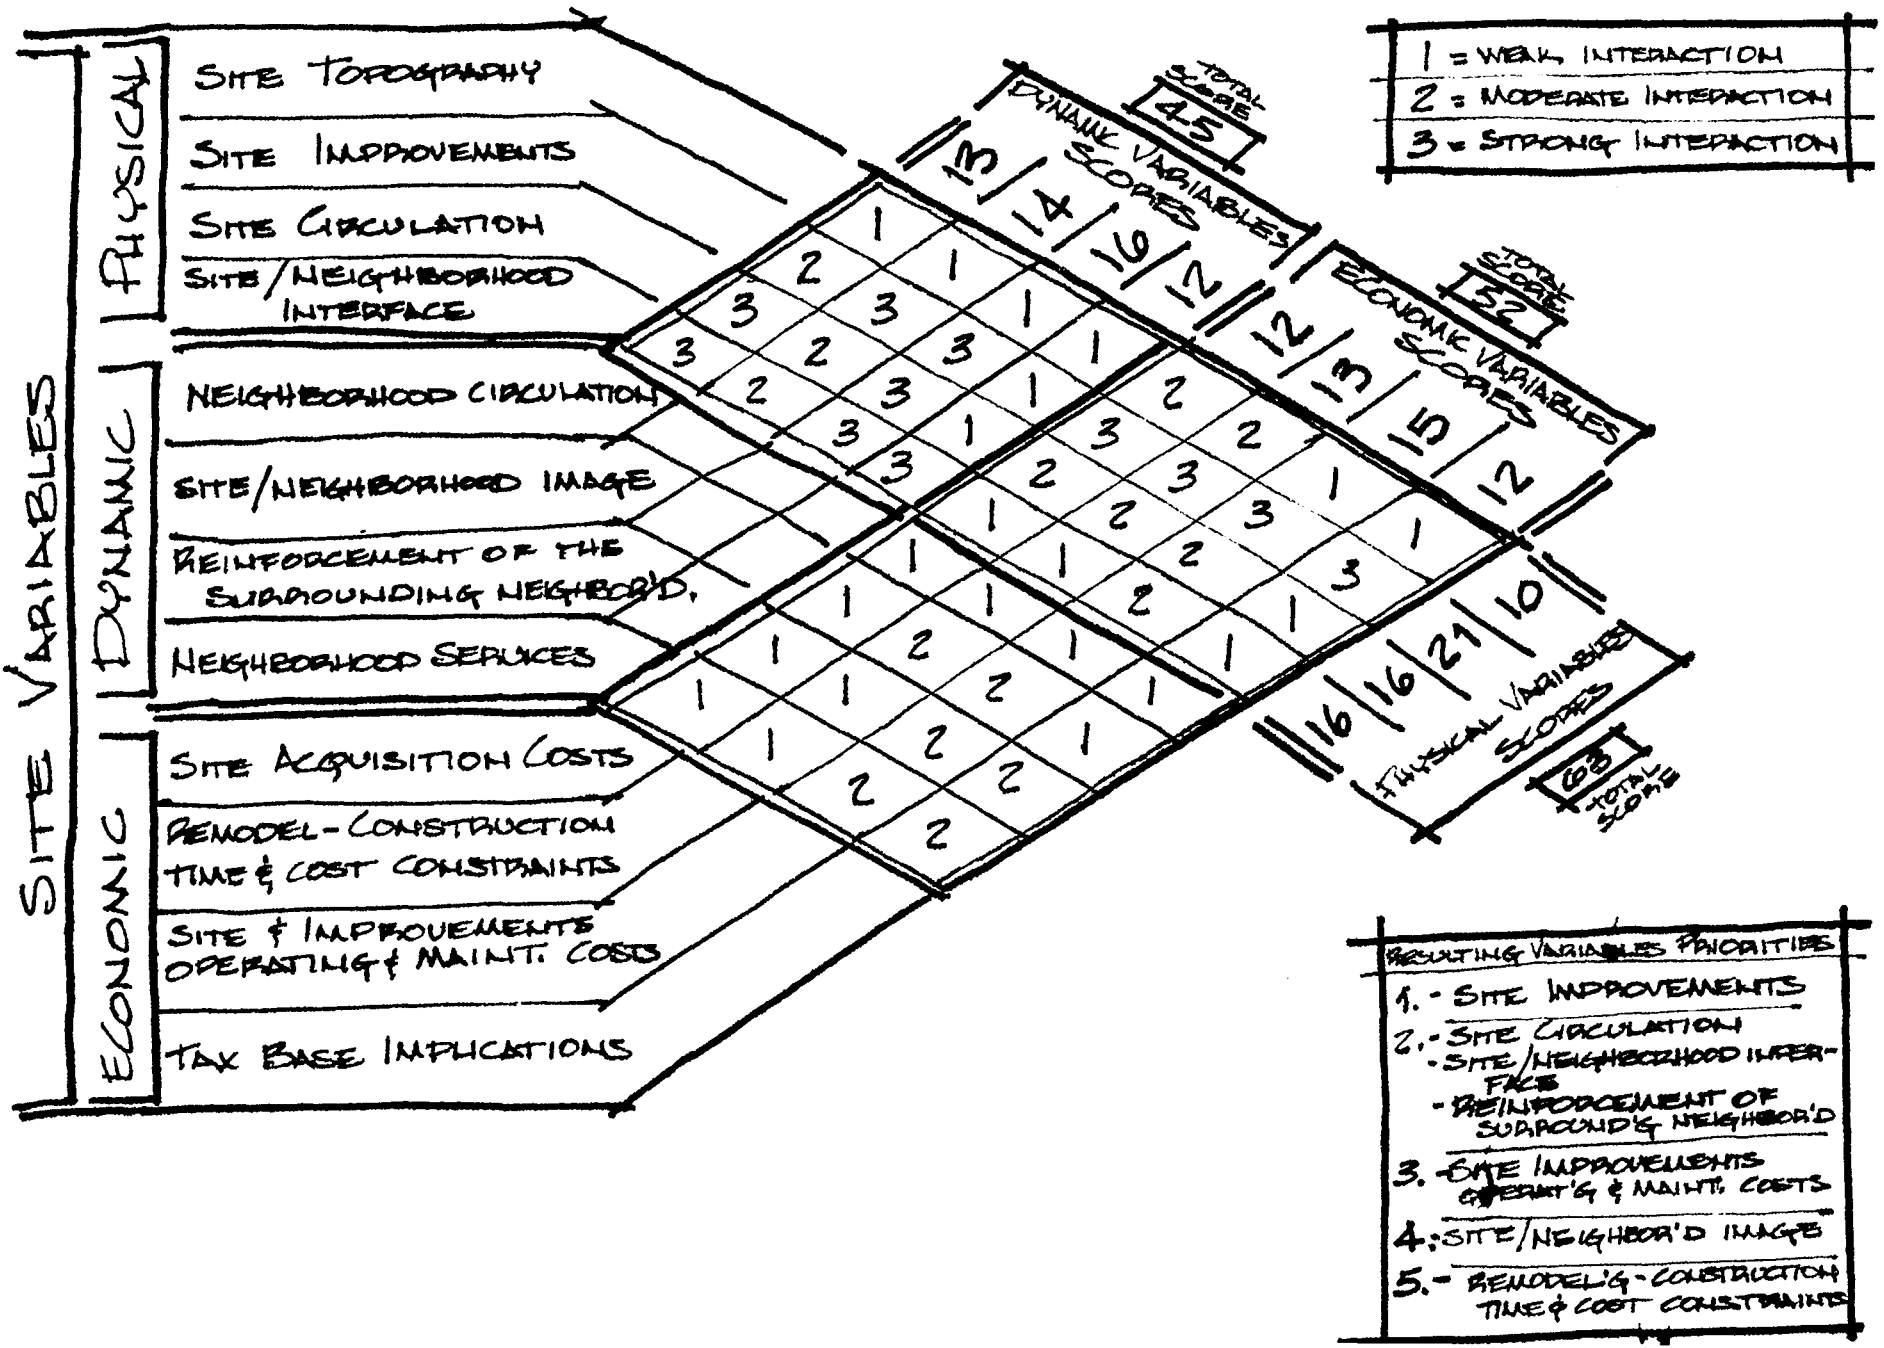 SITE VARIABLES
PHYSICAL
SITE TOPOGRAPHY
SITE IMPROVEMENTS
SITE CIRCULATION
SITE/NEIGHBORHOOD
INTERFACE
DYNAMIC
NEIGHBORHOOD CIRCULATION
SITE/NEIGHBORHOOD IMAGE
REINFORCEMENT OF THE
SURROUNDING NEIGHBOR'D.
NEIGHBORHOOD SERVICES
ECONOMIC
SITE ACQUISITION COSTS
REMODEL-CONSTRUCTION
TIME & COST CONSTRAINTS
SITE & IMPROVEMENTS
OPERATING & MAINT. COSTS
TAX BASE IMPLICATIONS
1
2 1
3 3 1
3 2 3 1
2 3 1
3 1
3
2
3 2
2 3 1
1 2 3 1
1 2 3
2 1
1
1
1 1
1 2 1
1 1 2 1
1 2 1
2 2
2
TOTAL
SCORE
45
DYNAMIC VARIABLES
SCORES
13 14 16 12
TOTAL
SCORE
52
ECONOMIC VARIABLES
SCORES
12 13 15 12
16 16 21 10
PHYSICAL VARIABLES
SCORES
63
TOTAL
SCORE
1 = WEAK INTERACTION
2 = MODERATE INTERACTION
3 = STRONG INTERACTION
RESULTING VARIABLES PRIORITIES
1.- SITE IMPROVEMENTS
2.- SITE CIRCULATION
- SITE/NEIGHBORHOOD INTER-
FACE
- REINFORCEMENT OF
SURROUND'G NEIGHBOR'D
3.- SITE IMPROVEMENTS
OPERAT'G & MAINT. COSTS
4.- SITE/NEIGHBOR'D IMAGE
5.- REMODEL'G-CONSTRUCTION
TIME & COST CONSTRAINTS